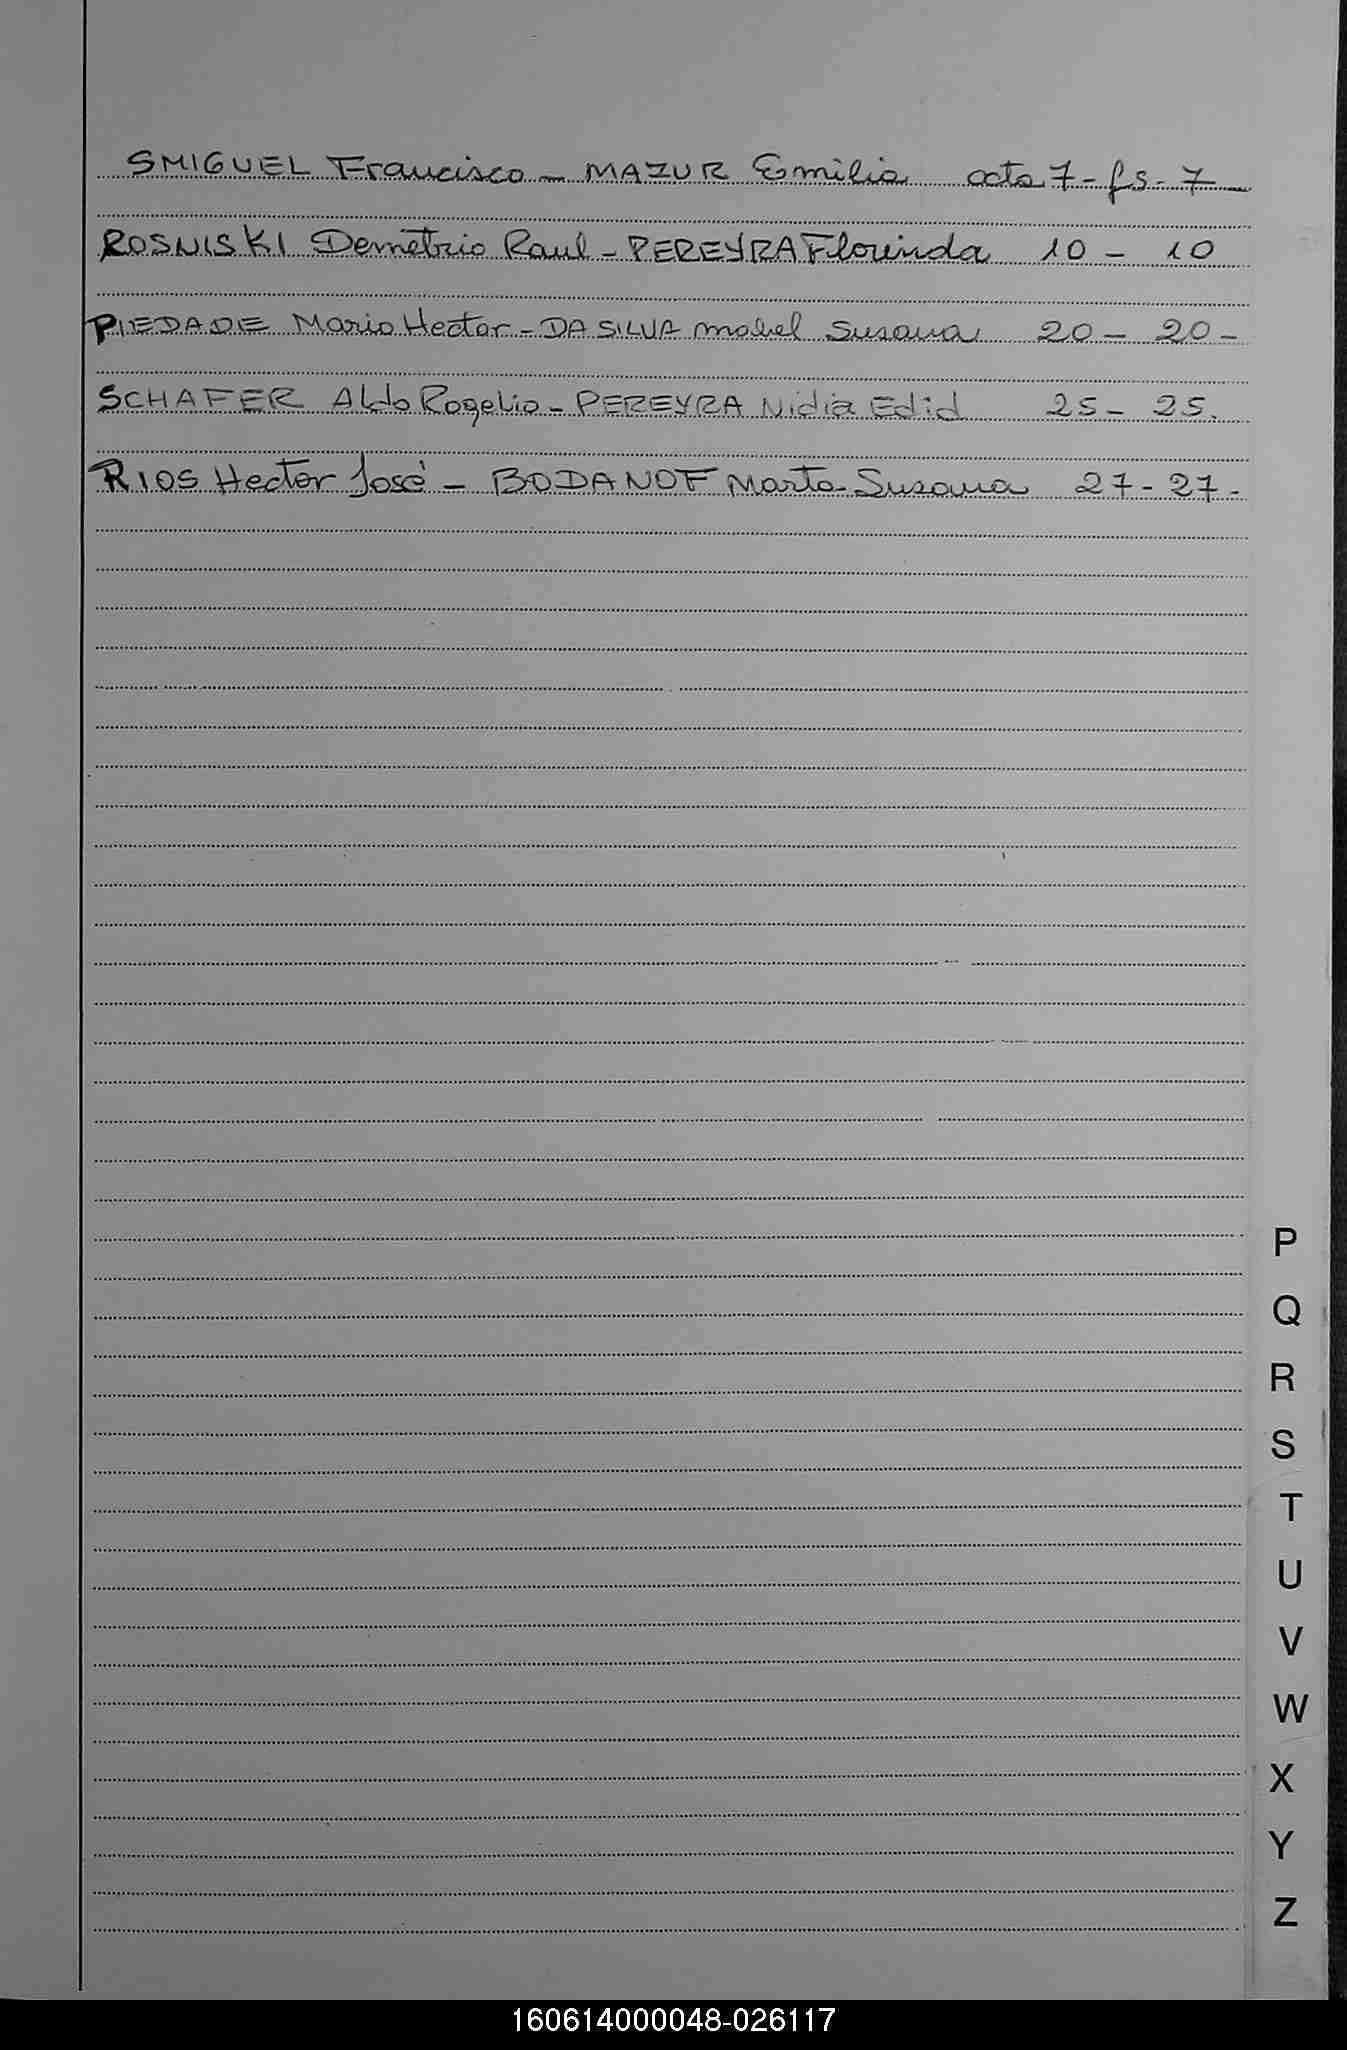 SMIGUEL Francisco - MAZUR Emilia acta 7 - fs - 7
ROSNISKI Demetrio Raul - PEREYRA Florinda 10 - 10
PIEDADE Mario Hector - DA SILVA Mabel Susana 20 - 20 -
SCHAFER Aldo Rogelio - PEREYRA Nidia Edid 25 - 25.
RIOS Hector José - BODANOF Marta Susana 27 - 27 -
P
Q
R
S
T
U
V
W
X
Y
Z
160614000048-026117